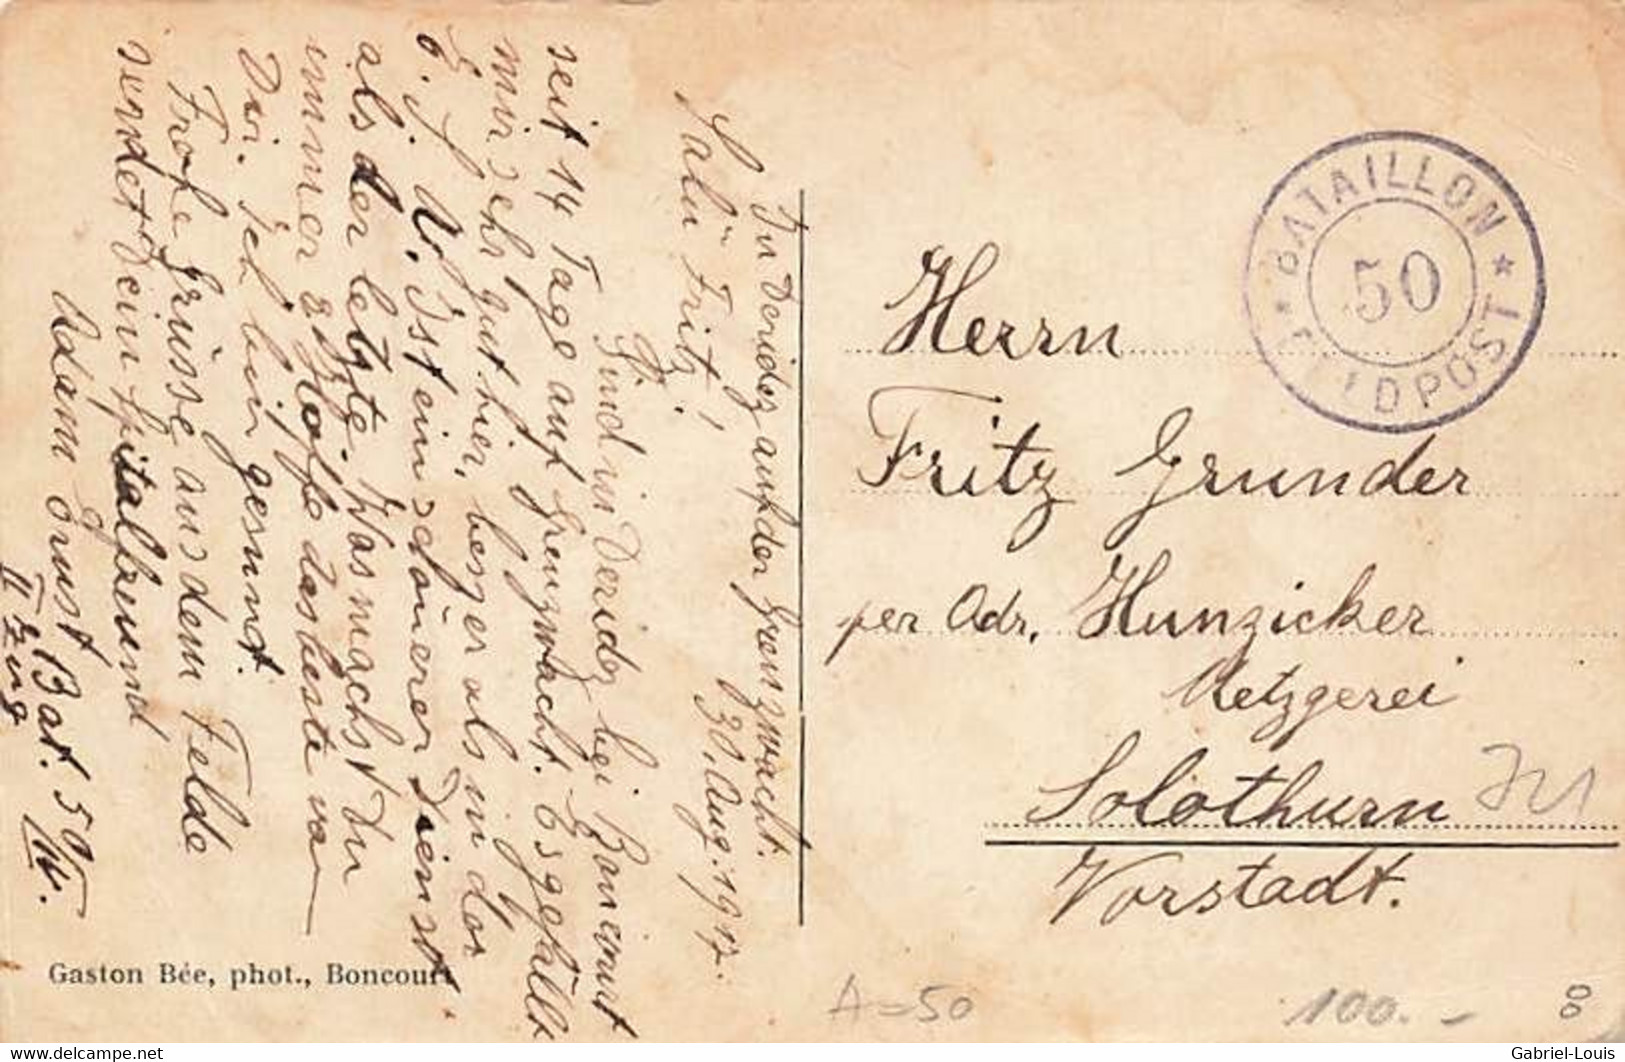 In Deridez auf der Grenzwacht.
30. Aug. 1917.
Salü Fritz,
Sind in Deridez bei Boncourt
seit 14 Tage auf Grenzwacht. Es gefällt
mir sehr gut hier, besser als in der
Ist ein schönerer Dienst
als der letzte. Was machst Du
immer hoffe das beste von
Dir. Ich bin gesund.
Frohe Grüsse aus dem Felde
sendet Dein Spitalfreund
Adam Ernst
Bat. 50 IV.
II Zug
Gaston Bée, phot., Boncourt
BATAILLON
50
FELDPOST
Herrn
Fritz Grunder
per Adr. Hunzicker
Metzgerei
Solothurn
Vorstadt.
A=50
100.-
Gabriel-Louis